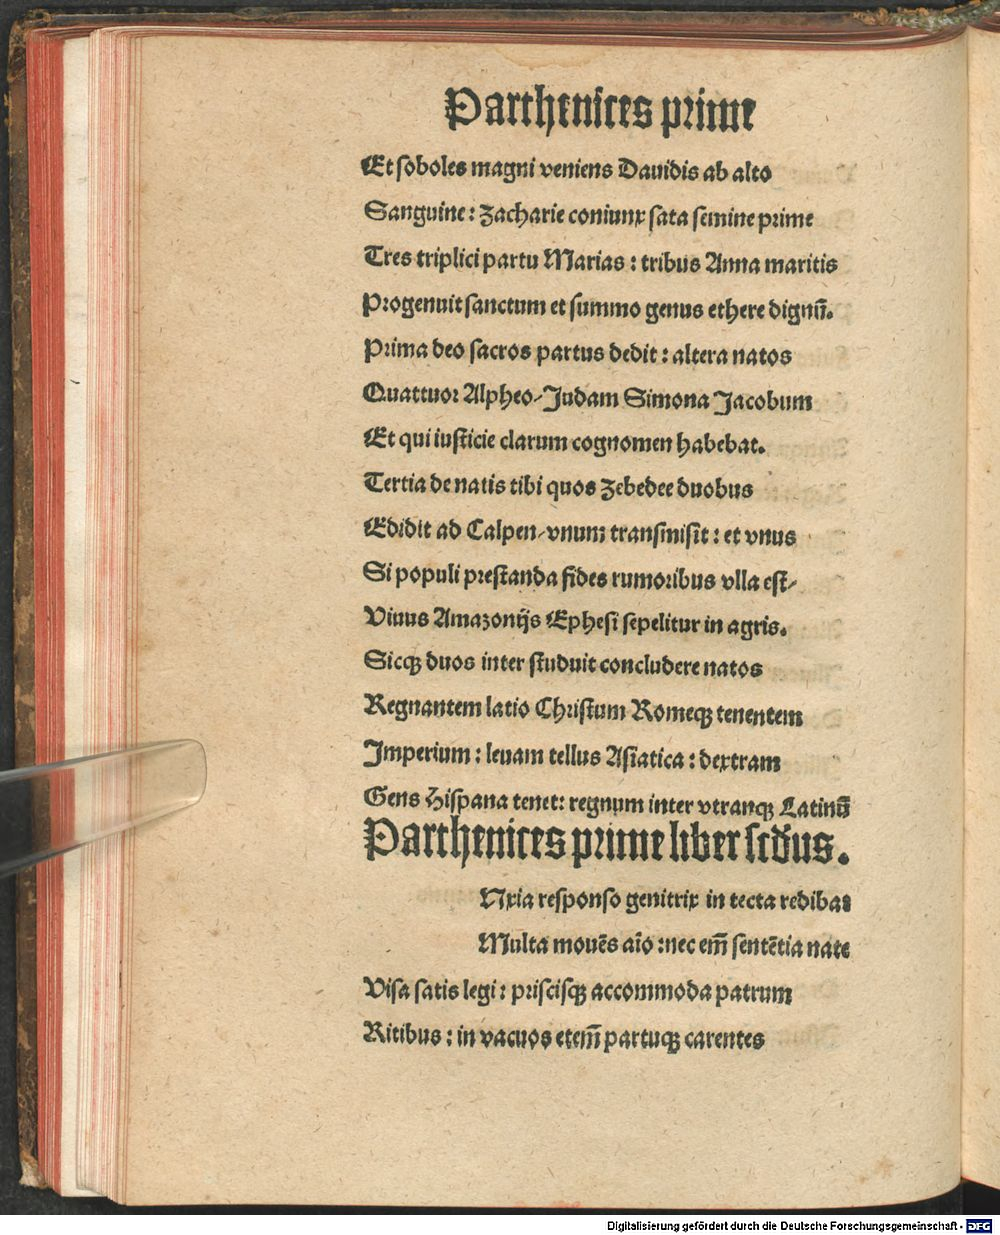 Parthenices prime
Et soboles magni veniens Dauidis ab alto
Sanguine: Zacharie coniunx sata semine prime
Tres triplici partu Marias: tribus Anna maritis
Progenuit sanctum et summo genus ethere dignū.
Prima deo sacros partus dedit: altera natos
Quattuor Alpheo/Judam Simona Jacobum
Et qui iusticie clarum cognomen habebat.
Tertia de natis tibi quos zebedee duobus
Edidit ad Calpen/vnum transmisit: et vnus
Si populi prestanda fides rumoribus vlla est/
Viuus Amazonijs Ephesi sepelitur in agris.
Sicqꝫ duos inter studuit concludere natos
Regnantem latio Christum Romeqꝫ tenentem
Imperium: leuam tellus Asiatica: dextram
Gens Hispana tenet: regnum inter vtranqꝫ Latinū
Parthenices prime liber scd̄us.
Nxia responso genitrix in tecta redibat
Multa mouēs aīo: nec em̄ sentētia nate
Visa satis legi: priscisqꝫ accommoda patrum
Ritibus: in vacuos etem̄ partuqꝫ carentes
Digitalisierung gefördert durch die Deutsche Forschungsgemeinschaft - DFG